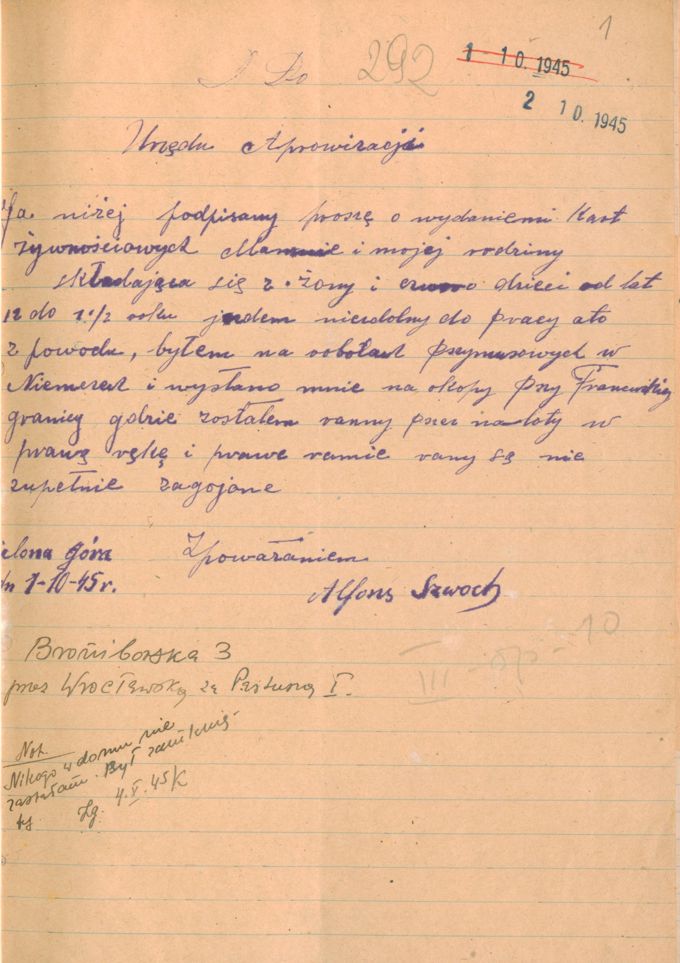 1
292
1 - 10. 1945
2 10. 1945
Do
Urzędu Aprowizacji
Ja niżej podpisany proszę o wydaniemi Kart
żywnościowych dla mnie i mojej rodziny
składająca się z żony i czworo dzieci od lat
12 do 1 1/2 roku jezdem niezdolny do pracy ato
z powodu, byłem na robotach przymusowych w
Niemczech i wysłano mnie na okopy przy Francuskiej
granicy gdzie zostałem ranny przez naloty w
prawą rękę i prawe ramie rany są nie
zupełnie zagojone
ielona góra Zpoważaniem
dn 1-10-45r. Alfons Szwoch
Broniborska 3
przez Wrocławską za I.
III 10
Not.
Nikogo w domu nie
zastałam. Był zamknię-
ty Zg. 4.X.45